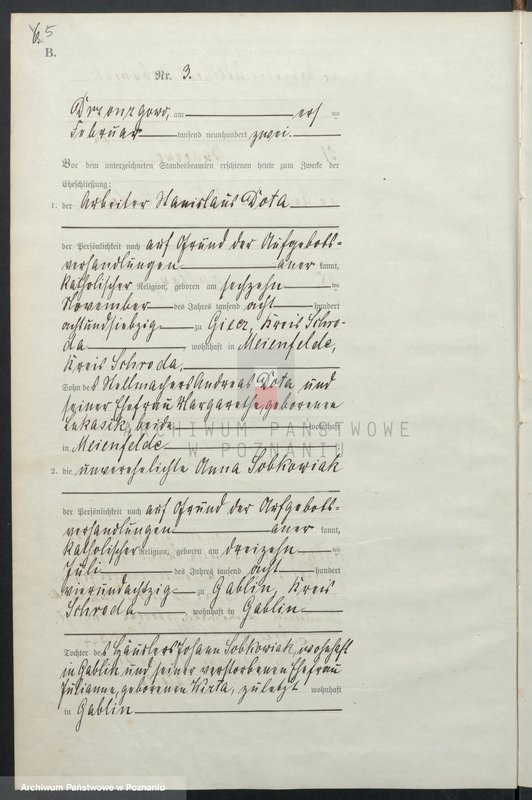 5
B.
Nr. 3.
Drzonzgowo, am ersten
Februar tausend neunhundert zwei.
Vor dem unterzeichneten Standesbeamten erschienen heute zum Zwecke der
Eheschließung:
1. der Arbeiter Stanislaus Dota
der Persönlichkeit nach auf Grund der Aufgebots-
verhandlungen anerkannt,
katholischer Religion, geboren am sechzehnten
November des Jahres tausend achthundert
achtundsiebzig zu Giecz, Kreis Schro-
da, wohnhaft in Meienfelde,
Kreis Schroda,
Sohn des Stellmachers Andreas Dota und
seiner Ehefrau Margarethe, geborenen
Lukasik, beide wohnhaft
in Meienfelde
2. die unverehelichte Anna Sobkowiak
der Persönlichkeit nach auf Grund der Aufgebots-
verhandlungen anerkannt,
katholischer Religion, geboren am dreizehnten
Juli des Jahres tausend achthundert
vierundachtzig zu Gablin, Kreis
Schroda, wohnhaft in Gablin
Tochter des Häuslers Johann Sobkowiak, wohnhaft
in Gablin und seiner verstorbenen Ehefrau
Julianna, geborenen zuletzt wohnhaft
in Gablin
ARCHIWUM PAŃSTWOWE
W POZNANIU
Archiwum Państwowe w Poznaniu